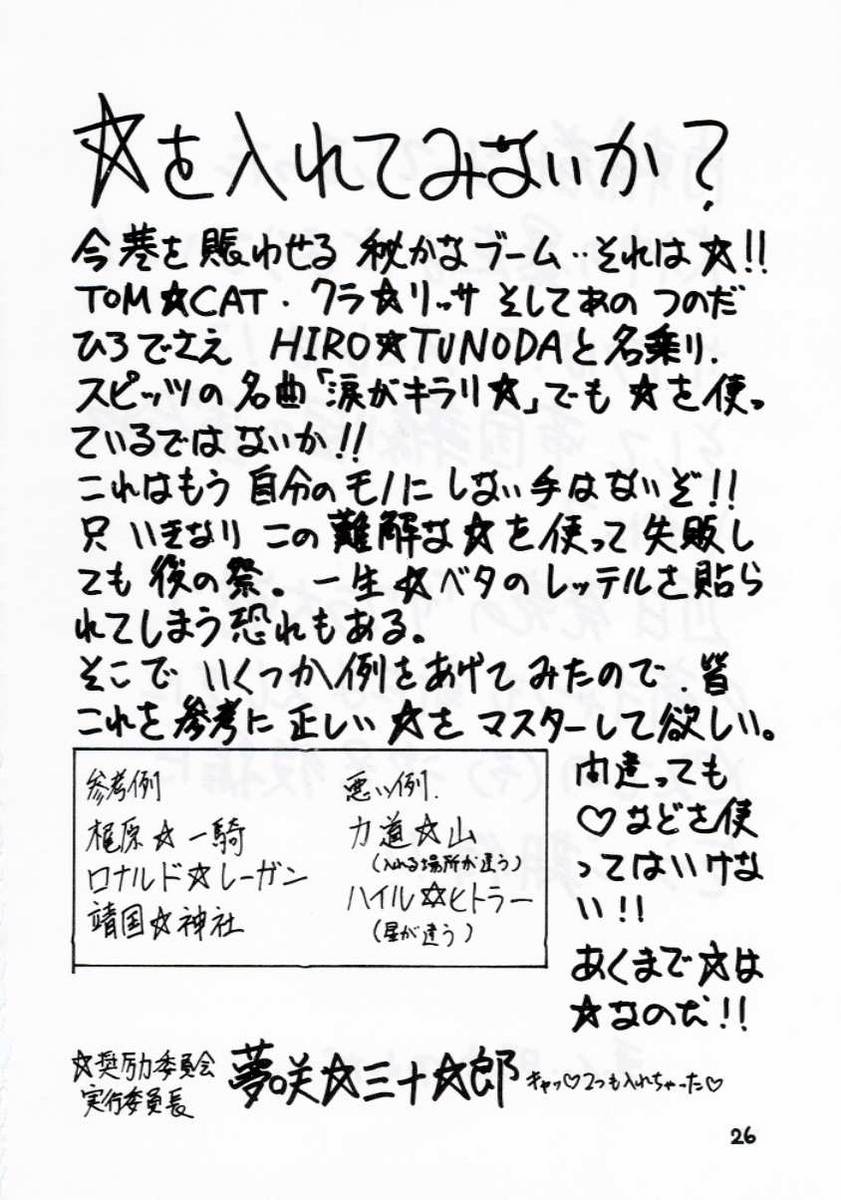 ☆を入れてみないか?
今巷を賑わせる 秘かなブーム‥それは☆!!
TOM☆CAT・クラ☆リッサ そしてあの つのだ
ひろでさえ HIRO☆TUNODAと名乗り、
スピッツの名曲「涙がキラリ☆」でも ☆を使っ
ているではないか!!
これはもう 自分のモノに しない手はないぞ!!
只 いきなり この難解な☆を使って失敗し
ても 後の祭。一生☆ベタのレッテルを貼ら
れてしまう恐れもある。
そこで いくつか例をあげてみたので、皆
これを参考に 正しい☆を マスターして欲しい。
参考例
梶原☆一騎
ロナルド☆レーガン
靖国☆神社
悪い例.
力道☆山
(入れる場所が違う)
ハイル✡ヒトラー
(星が違う)
間違っても
♡などを使
ってはいけな
い!!
あくまで☆は
☆なのだ!!
☆奨励委員会
実行委員長
夢咲☆三十☆郎
キャッ♡2つも入れちゃった♡
26